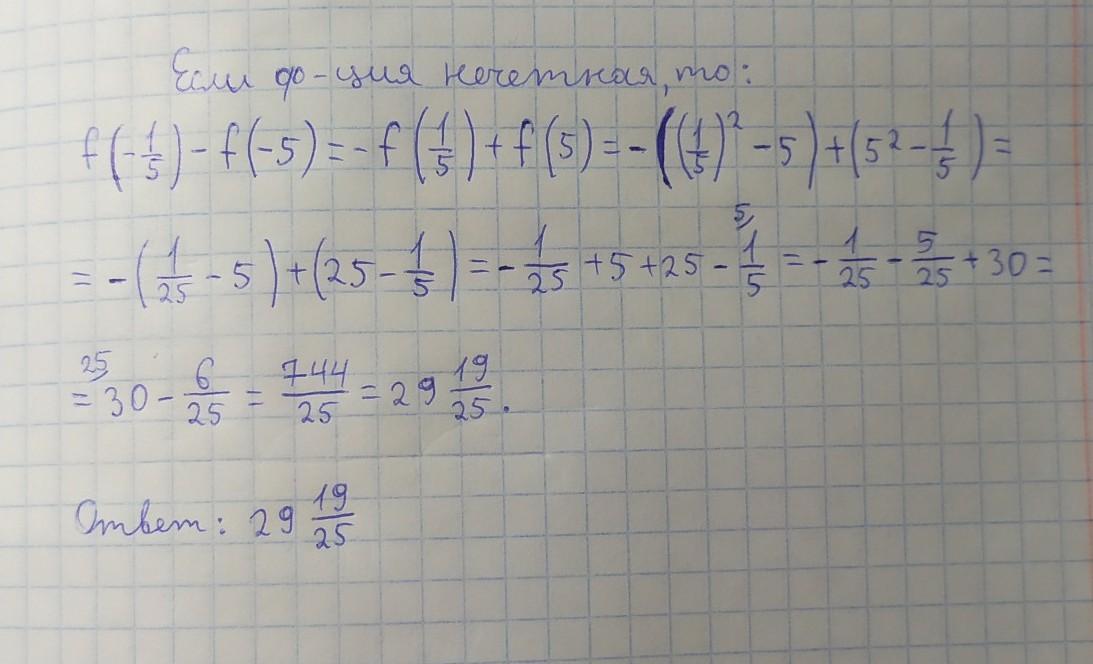 Если ф-ция нечетная, то:
f(-1/5) - f(-5) = -f(1/5) + f(5) = -((1/5)² - 5) + (5² - 1/5) =
= -(1/25 - 5) + (25 - 1/5) = -1/25 + 5 + 25 - ⁵⁾1/5 = -1/25 - 5/25 + 30 =
= ²⁵⁾30 - 6/25 = 744/25 = 29 19/25.
Ответ: 29 19/25